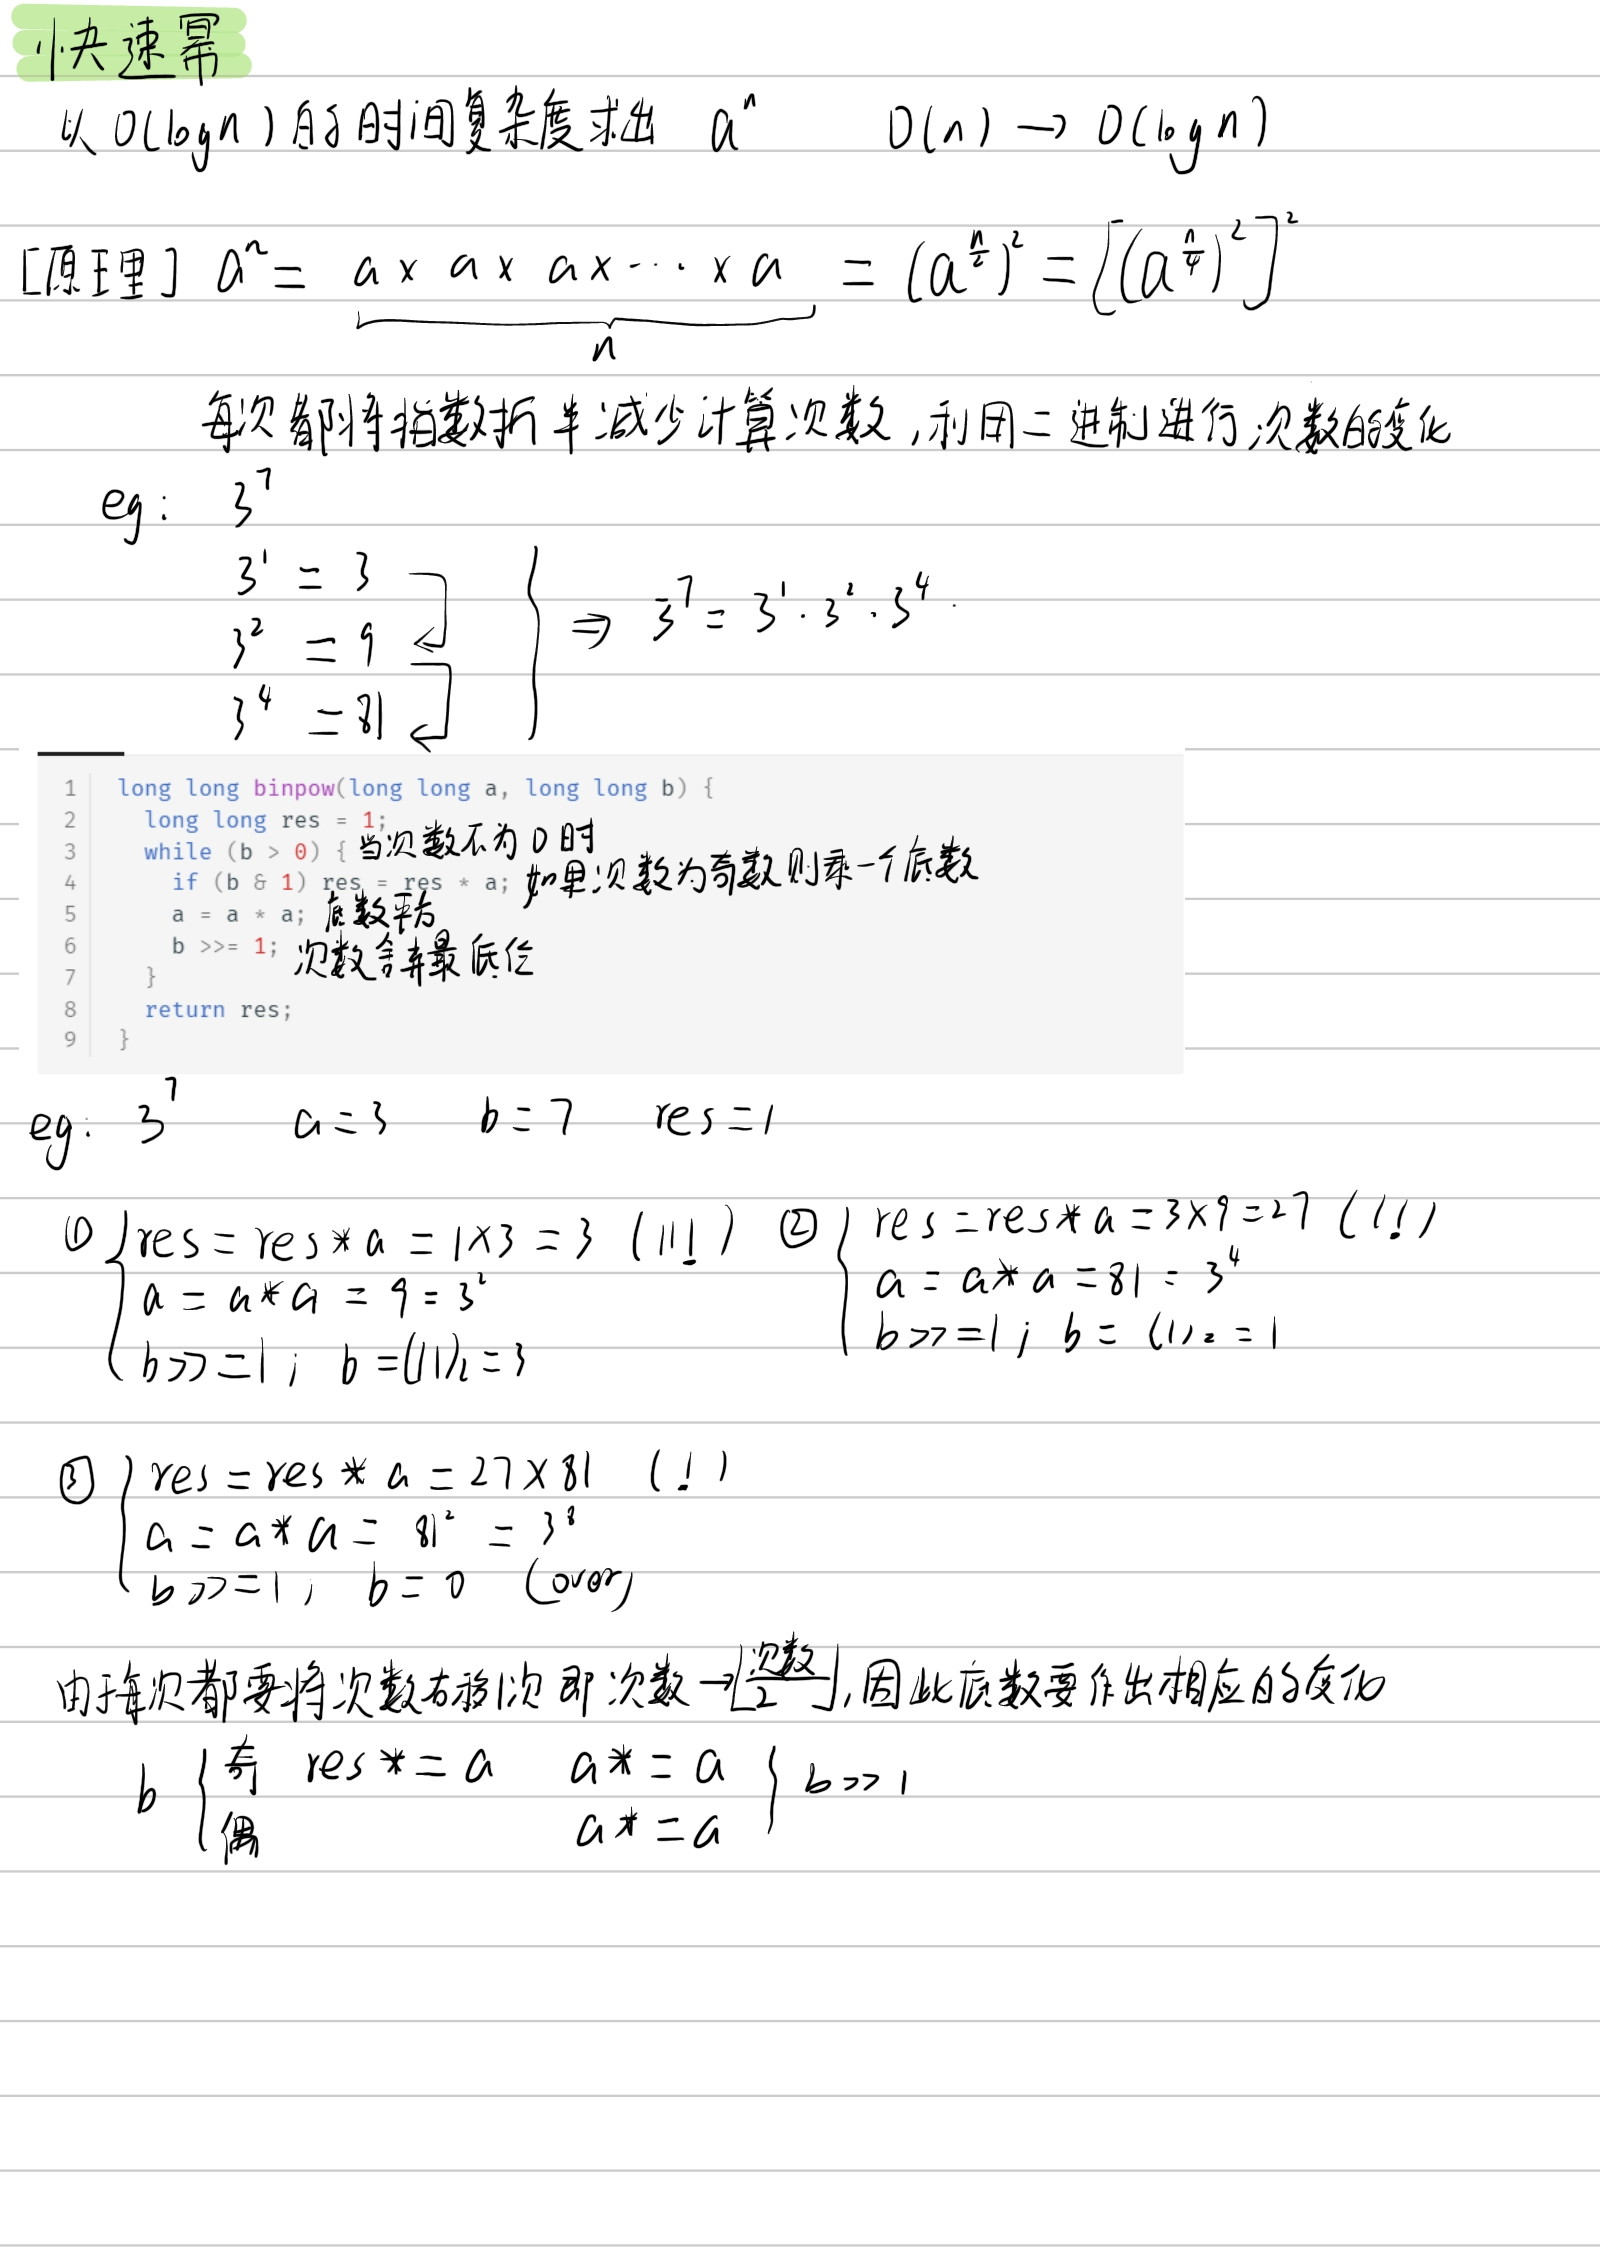 快速幂
以 O(logn) 的时间复杂度求出 aⁿ O(n) → O(logn)
[原理] aⁿ = a × a × a × ··· × a = (a^(n/2))² = [(a^(n/4))²]²
n
每次都将指数折半减少计算次数,利用二进制进行次数的变化
eg: 3⁷
3¹ = 3
3² = 9
3⁴ = 81
⇒ 3⁷ = 3¹ · 3² · 3⁴
1 long long binpow(long long a, long long b) {
2 long long res = 1;
3 while (b > 0) { 当次数不为0时
4 if (b & 1) res = res * a; 如果次数为奇数则乘一个底数
5 a = a * a; 底数平方
6 b >>= 1; 次数舍弃最低位
7 }
8 return res;
9 }
eg: 3⁷ a=3 b=7 res=1
① res = res * a = 1×3 = 3 (111)
a = a*a = 9 = 3²
b>>=1; b=(11)₂=3
② res = res * a = 3×9 = 27 (11)
a = a*a = 81 = 3⁴
b>>=1; b=(1)₂=1
③ res = res * a = 27×81 (1)
a = a*a = 81² = 3⁸
b>>=1; b=0 (over)
由于每次都要将次数右移1次即次数→⌊次数/2⌋,因此底数要作出相应的变化
b { 奇 res*=a a*=a } b>>1
偶 a*=a